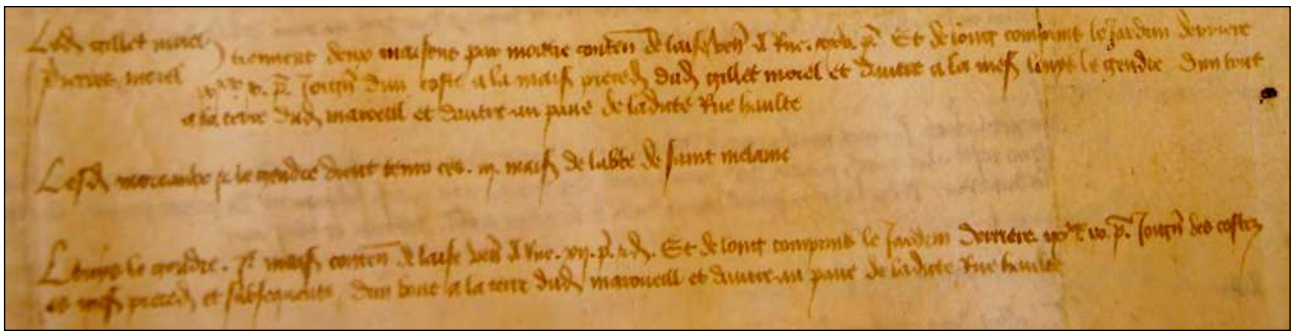 Led gillet morel
Pierres morel
tiennent deux maisons par moitie conten de laise vers d Rue. xxv. p. Et de long comprins le Jardin derriere
p. Joign dun coste a la mais preced dud gillet morel et dautre a la mes louys le gendre dun bout
a la terre dud maroeuil et dautre au pave de ladite Rue haulte
Lesd moreaulx & le gendre dient tenir ces. iij. mais de labbe de saint melaine
Louys le gendre. mais conten de laise vers d Rue. xij. p. Et de long comprins le Jardin derriere. p. Joign des costez
es mes preced et subsequente dun bout a la terre dud maroueil et dautre au pave de ladite Rue haulte